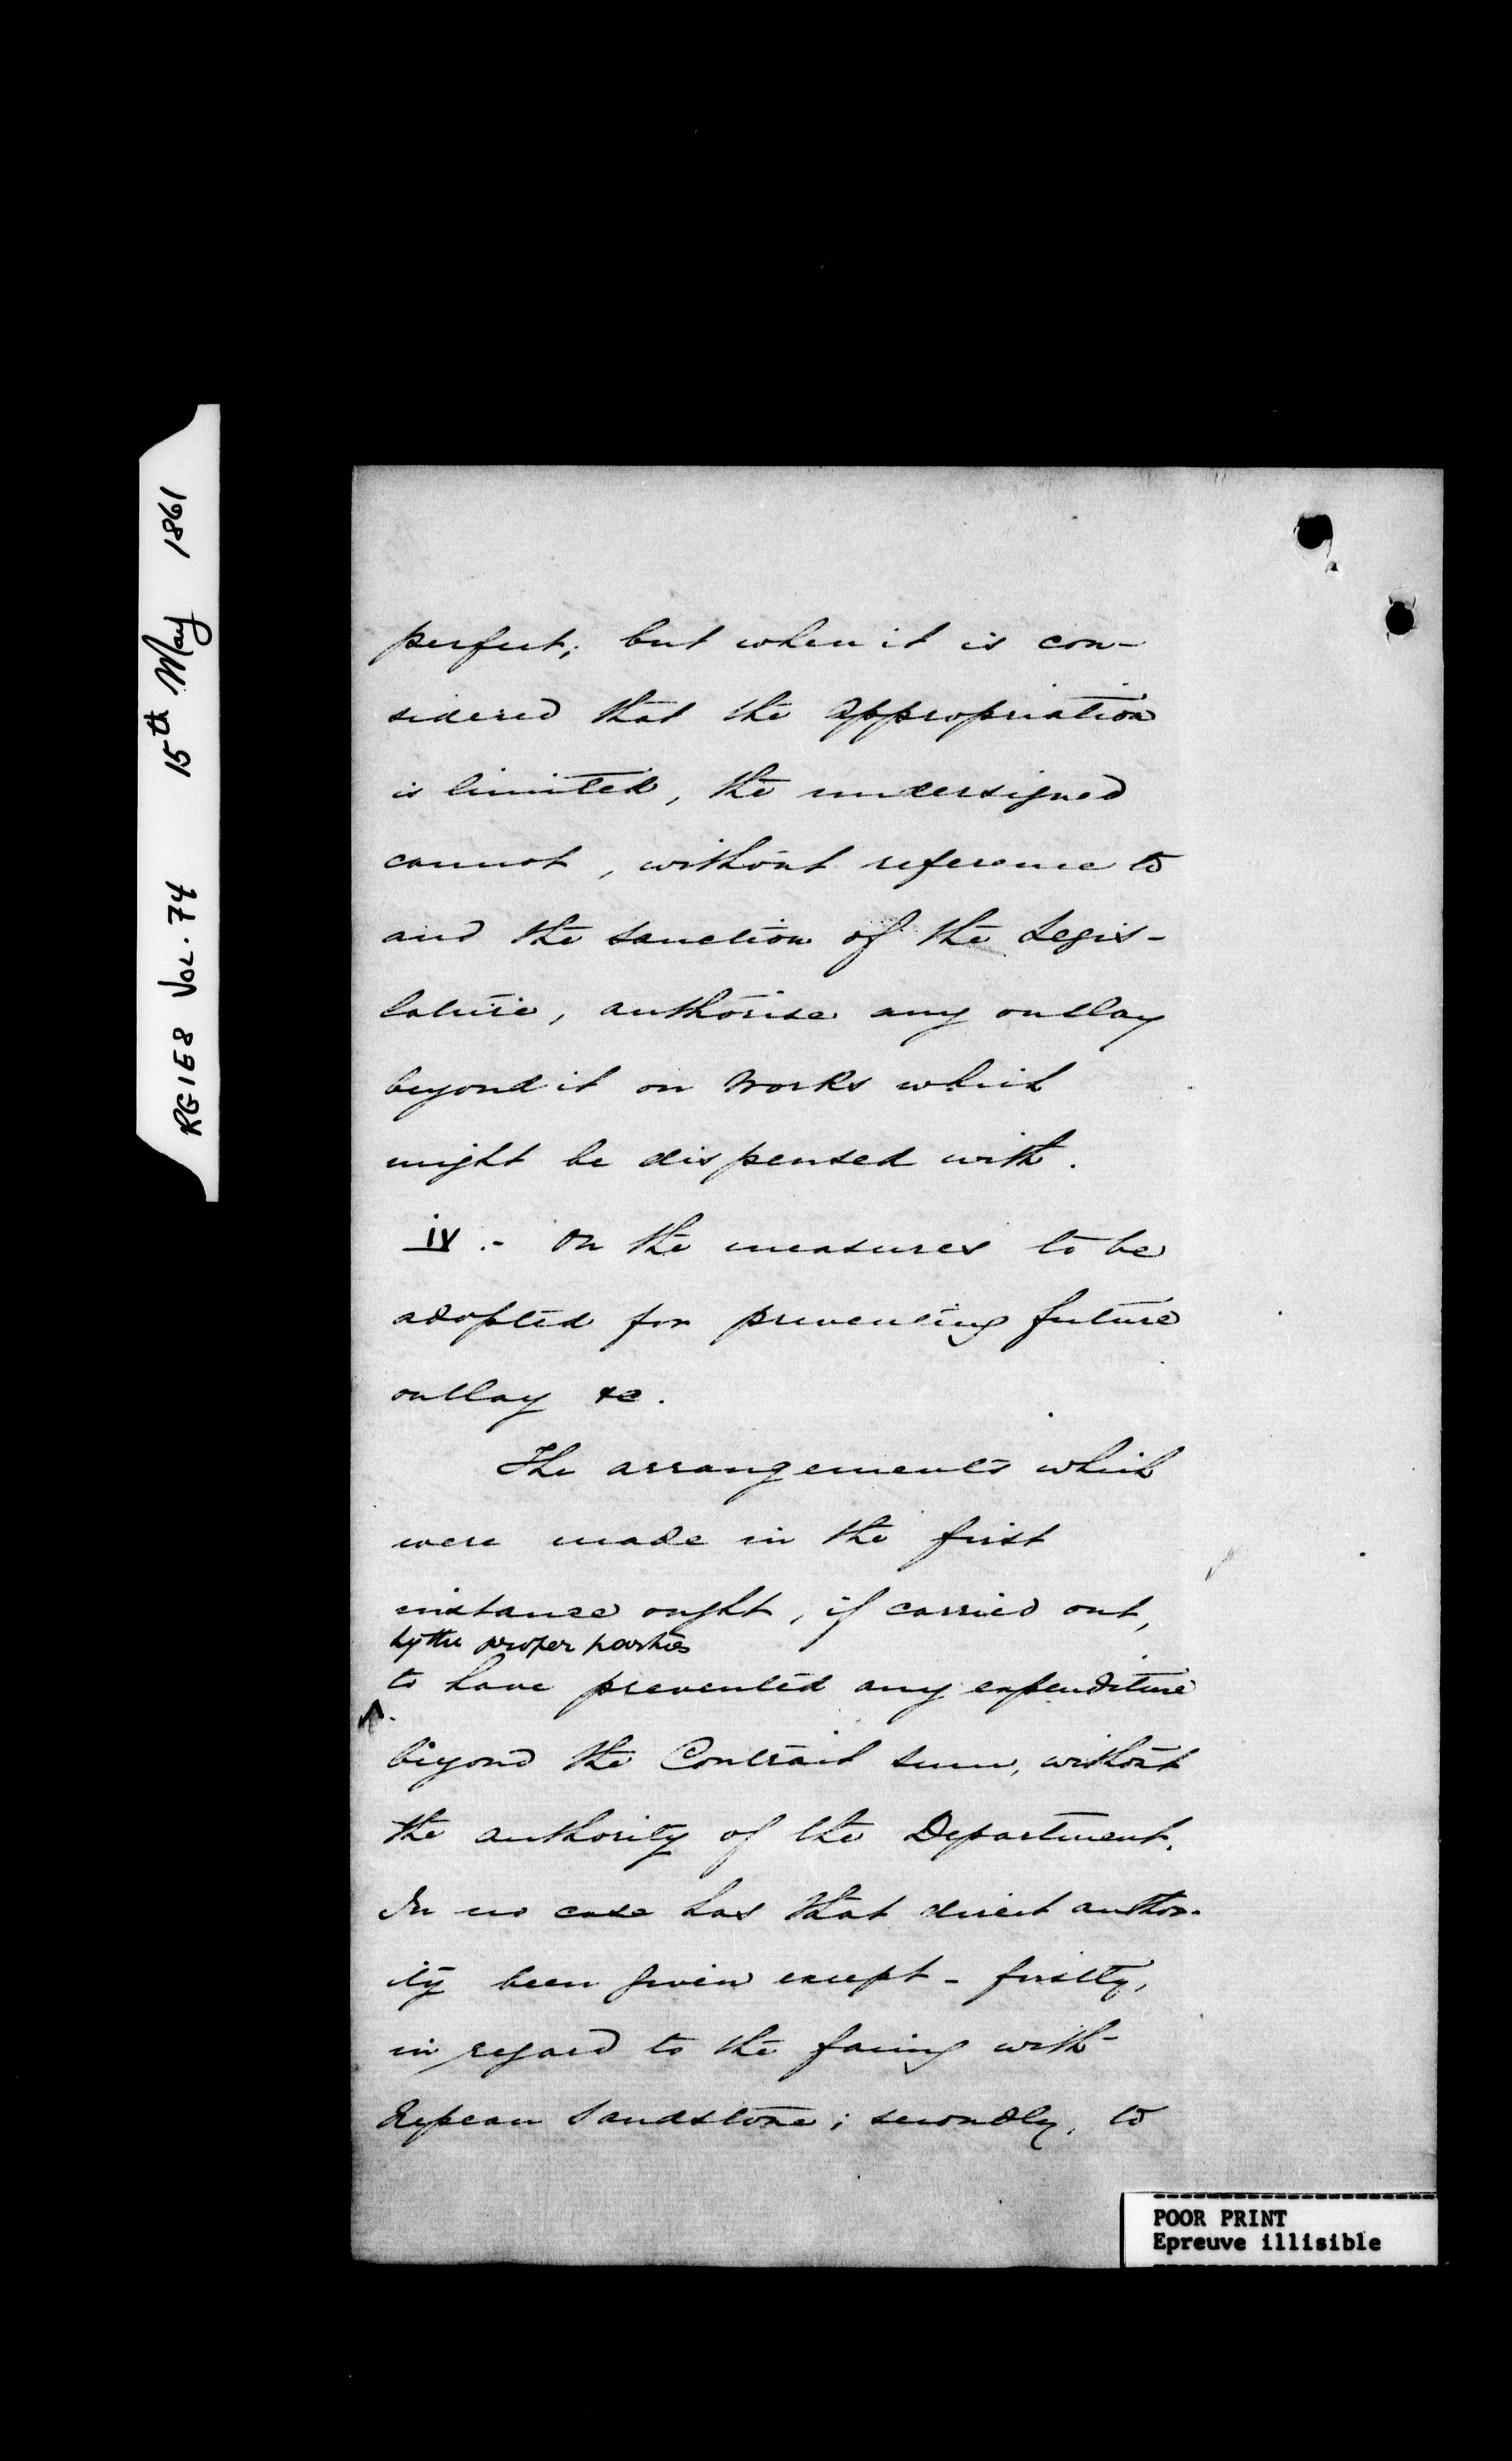 RG1E8 VOL. 74 15th May 1861
perfect; but when it is con-
sidered that the appropriation
is limited, the undersigned
cannot, without reference to
and the sanction of the Legis-
lature, authorise any outlay
beyond it on works which
might be dispensed with.
iv.- On the measures to be
adopted for preventing future
outlay &c.
The arrangements which
were made in the first
instance ought, if carried out,
by the proper parties
to have prevented any expenditure
beyond the Contract sum, without
the authority of the Department.
In no case has that direct author-
ity been given except - firstly,
in regard to the facing with
Nepean Sandstone; secondly, to
POOR PRINT
Epreuve illisible